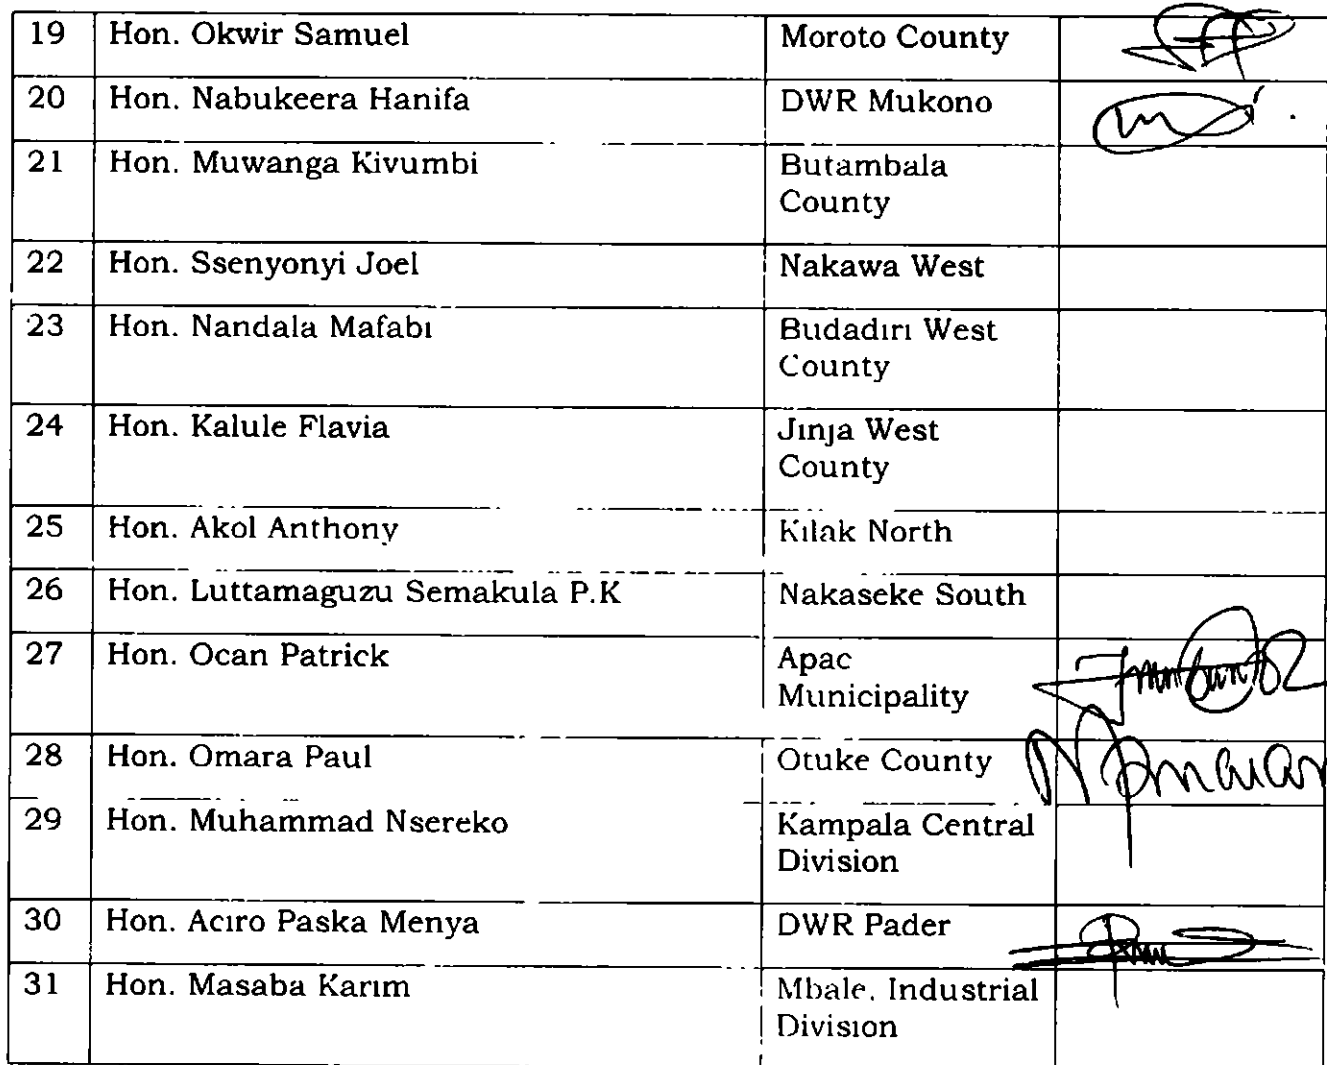 19 Hon. Okwir Samuel Moroto County
20 Hon. Nabukeera Hanifa DWR Mukono
21 Hon. Muwanga Kivumbi Butambala
County
22 Hon. Ssenyonyi Joel Nakawa West
23 Hon. Nandala Mafabi Budadiri West
County
24 Hon. Kalule Flavia Jinja West
County
25 Hon. Akol Anthony Kilak North
26 Hon. Luttamaguzu Semakula P.K Nakaseke South
27 Hon. Ocan Patrick Apac
Municipality
28 Hon. Omara Paul Otuke County
29 Hon. Muhammad Nsereko Kampala Central
Division
30 Hon. Aciro Paska Menya DWR Pader
31 Hon. Masaba Karim Mbale, Industrial
Division